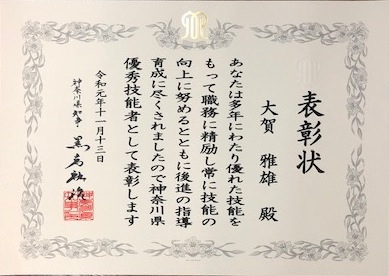 表彰状
大賀 雅雄 殿
あなたは多年にわたり優れた技能を
もって職務に精励し常に技能の
向上に努めるとともに後進の指導
育成に尽くされましたので神奈川県
優秀技能者として表彰します
令和元年十一月十三日
神奈川県知事 黒岩祐治